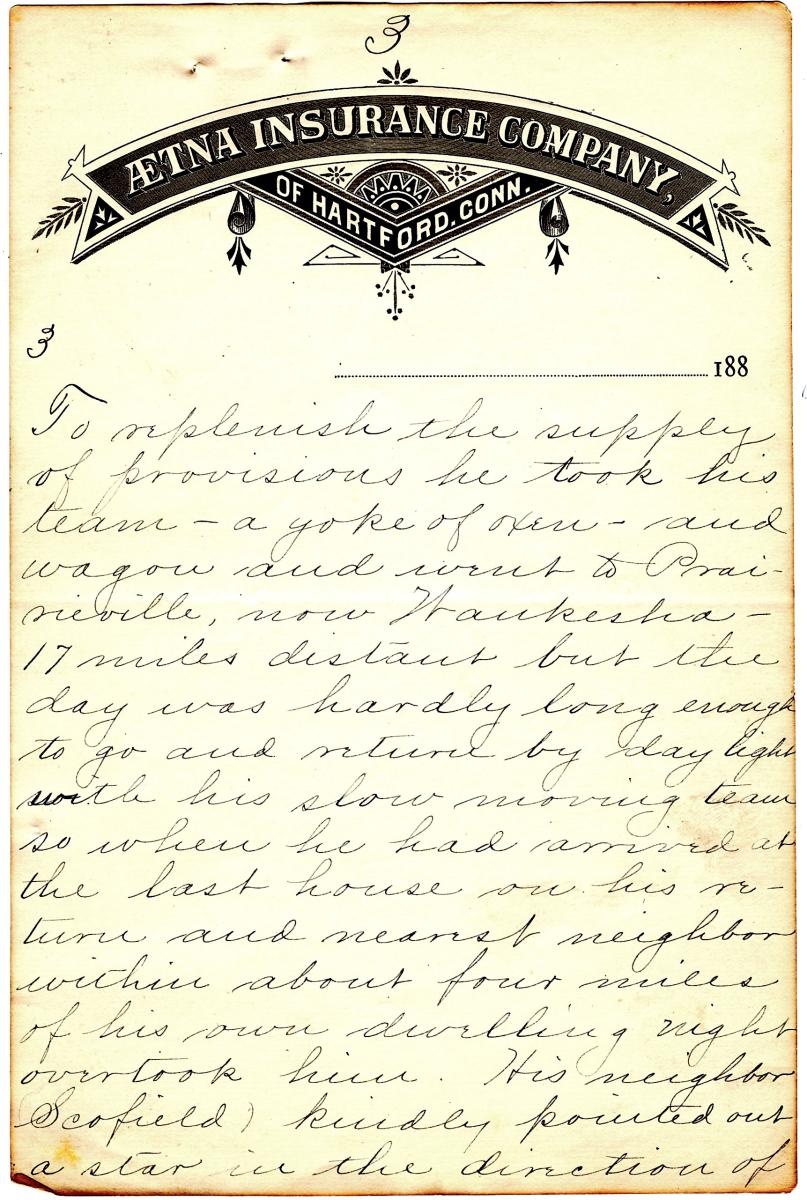 3
ÆTNA INSURANCE COMPANY,
OF HARTFORD. CONN.
3
188
To replenish the supply
of provisions he took his
team – a yoke of oxen – and
wagon and went to Prai-
rieville, now Waukesha –
17 miles distant but the
day was hardly long enough
to go and return by day light
with his slow moving team
so when he had arrived at
the last house on his re-
turn and nearest neighbor
within about four miles
of his own dwelling night
overtook him. His neighbor
(Scofield) kindly pointed out
a star in the direction of